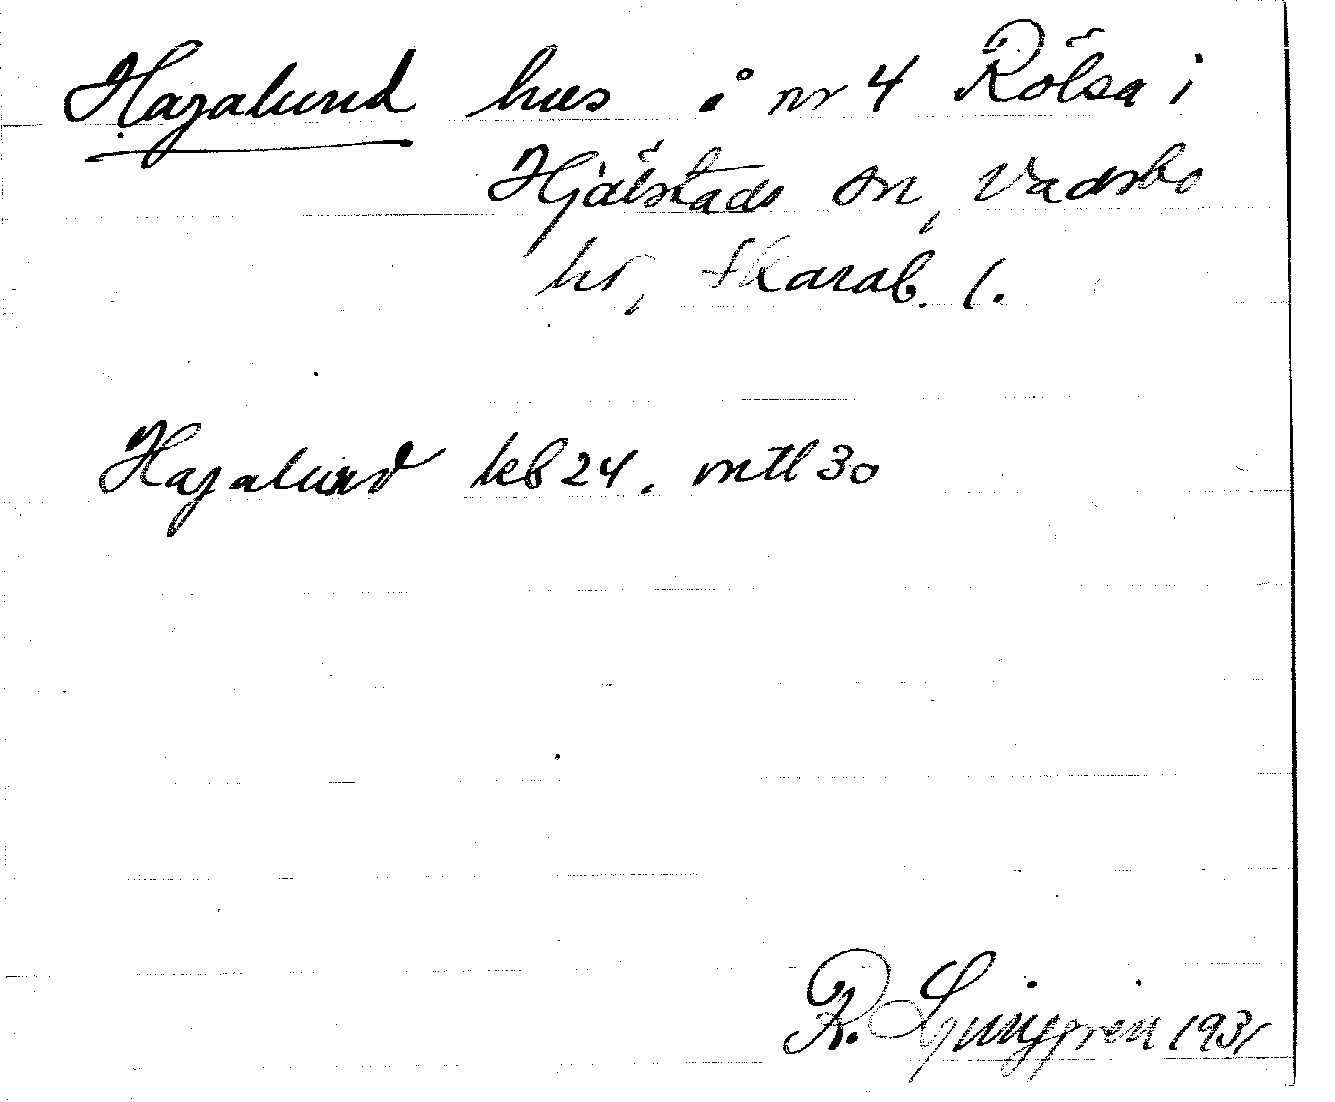 Hagalund hus å nr 4 Rölsa i
Hjälstads sn, Vadsbo
hd, Skarab. l.
Hagalund kb 24. mtl 30
R. Ljunggren 1931